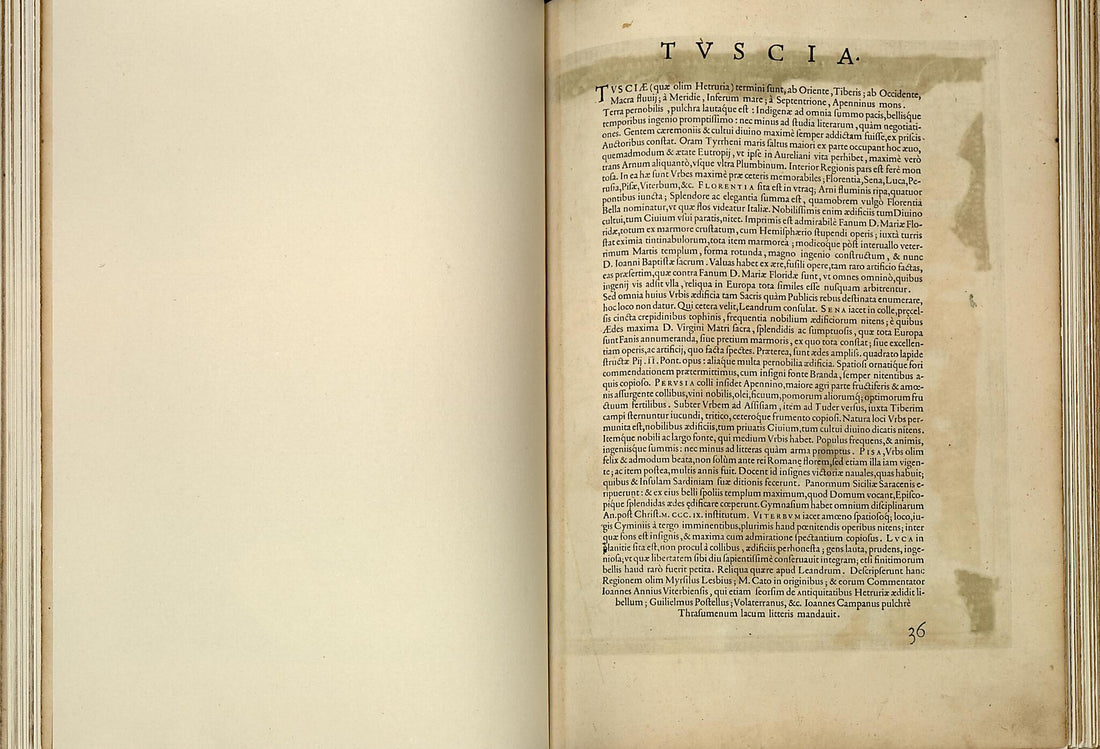 TVSCIA.
TVSCIÆ (quæ olim Hetruria) termini sunt, ab Oriente, Tiberis; ab Occidente,
Macra fluuij; à Meridie, Inferum mare; à Septentrione, Apenninus mons.
Terra pernobilis, pulchra lautaque est: Indigenæ ad omnia summo pacis, bellisque
temporibus ingenio promptissimo: nec minus ad studia literarum, quàm negotiati-
ones. Gentem cæremoniis & cultui diuino maximè semper addictam fuisse, ex priscis
Auctoribus constat. Oram Tyrrheni maris saltus maiori ex parte occupant hoc æuo,
quemadmodum & ætate Eutropij, vt ipse in Aureliani vita perhibet, maximè verò
trans Arnum aliquantò, vsque vltra Plumbinum. Interior Regionis pars est ferè mon
tosa. In ea hæ sunt Vrbes maximè præ ceteris memorabiles; Florentia, Sena, Luca, Pe-
rusia, Pisæ, Viterbum, &c. FLORENTIA sita est in vtraq; Arni fluminis ripa, quatuor
pontibus iuncta; Splendore ac elegantia summa est, quamobrem vulgò Florentia
Bella nominatur, vt quæ flos videatur Italiæ. Nobilissimis enim ædificiis tum Diuino
cultui, tum Ciuium vsui paratis, nitet. Imprimis est admirabilè Fanum D. Mariæ Flo-
ridæ, totum ex marmore crustatum, cum Hemisphærio stupendi operis; iuxtà turris
stat eximia tintinabulorum, tota item marmorea; modicoque pòst interuallo veter-
rimum Martis templum, forma rotunda, magno ingenio constructum, & nunc
D. Ioanni Baptistæ sacrum. Valuas habet ex ære, fusili opere, tam raro artificio factas,
eas præsertim, quæ contra Fanum D. Mariæ Floridæ sunt, vt omnes omninò, quibus
ingenij vis adsit vlla, reliqua in Europa tota similes esse nusquam arbitrentur.
Sed omnia huius Vrbis ædificia tam Sacris quàm Publicis rebus destinata enumerare,
hoc loco non datur. Qui cetera velit, Leandrum consulat. SENA iacet in colle, præcel-
sis cincta crepidinibus tophinis, frequentia nobilium ædificiorum nitens; è quibus
Ædes maxima D. Virgini Matri sacra, splendidis ac sumptuosis, quæ tota Europa
sunt Fanis annumeranda, siue pretium marmoris, ex quo tota constat; siue excellen-
tiam operis, ac artificij, quo facta spectes. Præterea, sunt ædes amplis. quadrato lapide
structæ Pij. II. Pont. opus: aliaque multa pernobilia ædificia. Spatiosi ornatique fori
commendationem prætermittimus, cum insigni fonte Branda, semper nitentibus a-
quis copioso. PERVSIA colli insidet Apennino, maiore agri parte fructiferis & amœ-
nis assurgente collibus, vini nobilis, olei, ficuum, pomorum aliorumq; optimorum fru
ctuum fertilibus. Subter Vrbem ad Assisiam, item ad Tuder versus, iuxta Tiberim
campi sternuntur iucundi, tritico, ceteroque frumento copiosi. Natura loci Vrbs per-
munita est, nobilibus ædificiis, tum priuatis Ciuium, tum cultui diuino dicatis nitens.
Itemque nobili ac largo fonte, qui medium Vrbis habet. Populus frequens, & animis,
ingeniisque summis: nec minus ad litteras quàm arma promptus. PISA, Vrbs olim
felix & admodum beata, non solùm ante rei Romanę florem, sed etiam illa iam vigen-
te; ac item postea, multis annis fuit. Docent id insignes victoriæ nauales, quas habuit;
quibus & Insulam Sardiniam suæ ditionis fecerunt. Panormum Siciliæ Saracenis e-
ripuerunt: & ex eius belli spoliis templum maximum, quod Domum vocant, Episco-
pique splendidas ædes ędificare cœperunt. Gymnasium habet omnium disciplinarum
An. post Christ. M. CCC. IX. institutum. VITERBVM iacet amœno spatiosoq; loco, iu-
gis Cyminiis à tergo imminentibus, plurimis haud pœnitendis operibus nitens; inter
quæ fons est insignis, & maxima cum admiratione spectantium copiosus. LVCA in
planitie sita est, non procul à collibus, ædificiis perhonesta; gens lauta, prudens, inge-
niosa; vt quæ libertatem sibi diu sapientissimè conseruauit integram; etsi finitimorum
bellis haud rarò fuerit petita. Reliqua quære apud Leandrum. Descripserunt hanc
Regionem olim Myrsilus Lesbius; M. Cato in originibus; & eorum Commentator
Ioannes Annius Viterbiensis, qui etiam seorsim de Antiquitatibus Hetruriæ ædidit li-
bellum; Guilielmus Postellus; Volaterranus, &c. Ioannes Campanus pulchrè
Thrasumenum lacum litteris mandauit.
36